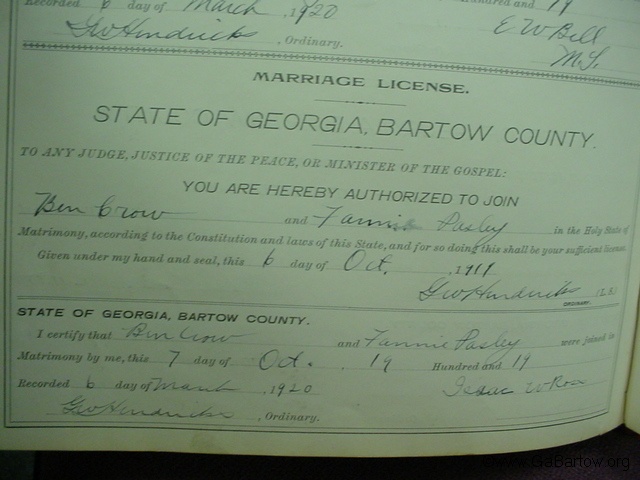 Recorded 6 day of March, 1920
Hundred and 19
Gw Hendricks, Ordinary.
E W Bell
M.G.
MARRIAGE LICENSE.
STATE OF GEORGIA, BARTOW COUNTY.
TO ANY JUDGE, JUSTICE OF THE PEACE, OR MINISTER OF THE GOSPEL:
YOU ARE HEREBY AUTHORIZED TO JOIN
Ben Crow and Fannie Pasley in the Holy State of
Matrimony, according to the Constitution and laws of this State, and for so doing this shall be your sufficient license.
Given under my hand and seal, this 6 day of Oct. , 1911
Gw Hendricks (L.S.)
ORDINARY.
STATE OF GEORGIA, BARTOW COUNTY.
I certify that Ben Crow and Fannie Pasley were joined in
Matrimony by me, this 7 day of Oct. 19 Hundred and 19
Recorded 6 day of March , 1920
Isaac W
Gw Hendricks , Ordinary.
GaBartow.org